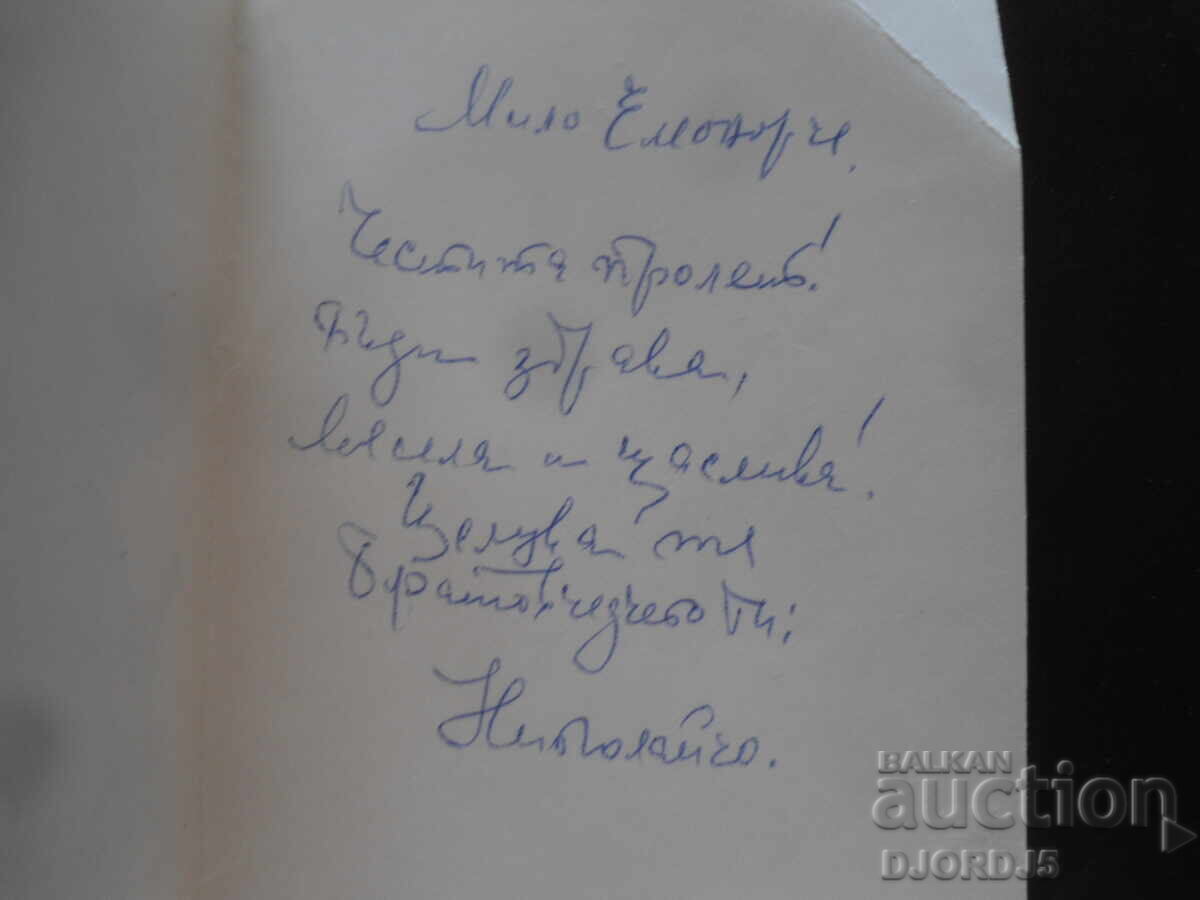 Мило Елеонорче,
Честита пролет!
Бъди здрава,
весела и щаслива!
Целува те
братовчедчето ти:
Николайчо.
BALKAN
auction
DJORDJ5